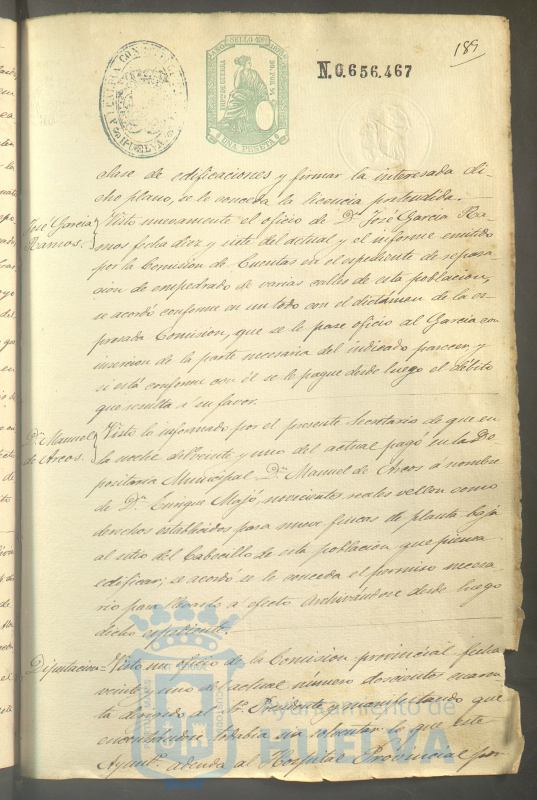 189
ALCALDIA CONSTITUCIONAL
HUELVA
AÑO SELLO 10º 1878
IMPTO DE GUERRA
50. POR %
UNA PESETA
N.0.656.467
clase de edificaciones y formar la interesada di-
cho plano, se le conceda la licencia pretendida.
José Garcia
Ramos.
Visto nuevamente el oficio de Dn José Garcia Ra-
mos fecha diez y siete del actual y el informe emitido
por la Comision de Cuentas en el espediente de repara-
cion de empedrado de varias calles de esta poblacion,
se acordó conforme en un todo con el dictámen de la es-
presada Comision, que se le pase oficio al Garcia con
insercion de la parte necesaria del indicado parecer, y
si está conforme con él se le pague desde luego el débito
que resulta á su favor.
Dn Manuel
de Arcos.
Visto lo informado por el presente Secretario de que en
la noche del veinte y uno del actual pagó en la De-
positaria Municipal Dn Manuel de Arcos á nombre
de Dn Enrique Mojó, novecientos reales vellon como
derechos establecidos para nueve fincas de planta baja
al sitio del Cabecillo de esta poblacion que piensa
edificar; se acordó se le conceda el permiso necesa-
rio para llevarlo á efecto archivándose desde luego
dicho espediente.
Diputacion
Visto un oficio de la Comision provincial fecha
veinte y uno de actual número doscientos cuaren-
ta dirijido al Sr. Presidente y manifestando que
encontrándose todabia sin solventar lo que este
Ayuntº adeuda al Hospital Provincial por
Ayuntamiento de
HUELVA